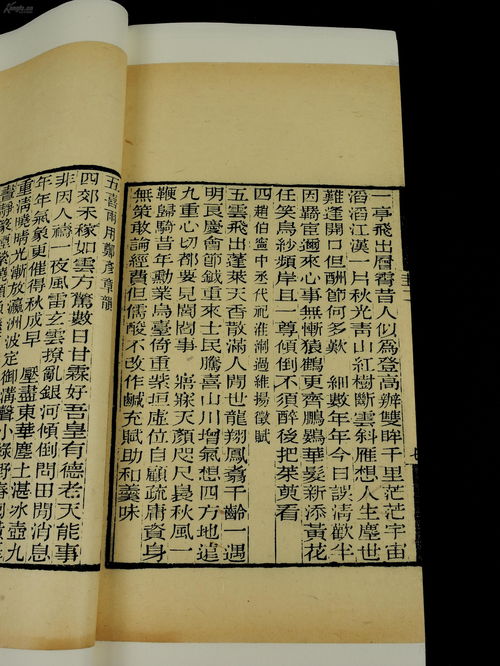 一亭飛出層霄昔人似爲登高辦雙眸千里茫茫宇宙
滔滔江漢一片秋光靑山紅樹斷雲斜雁想人生塵世
難逢開口但酬節何多歎 細數年年今日誤淸歡半
因羇宦邇來心事無慚猿鶴更齊鵬鷃華髮新添黃花
任笑烏紗頻岸且一尊傾倒不須醉後把茱萸看
四趙伯寧中丞代祀淮瀆過維揚徵賦
五雲飛出蓬萊天香散滿人間世龍翔鳳翥千齡一遇
明良慶會節鉞重來士民騰喜山川增氣想四方地遠
九重心切都要見閭閻事 寤寐天顏咫尺秋風一
鞭歸騎昔年勳業烏臺倚重垣虛位自顧疏庸資身
無策敢論經費但儒酸不改作鹹充賦助和羹味
五喜雨用鄭彥章韻
四郊禾稼如雲方驚數日甘霖好吾皇有德老天能事
非因人禱一夜風雷玄雲撩亂銀河傾倒問田間消息
年年氣象更催得秋成早 壓盡東華塵土湛冰壺九
重淸曉晴光漸放瀛洲波定御溝聲小綠野春